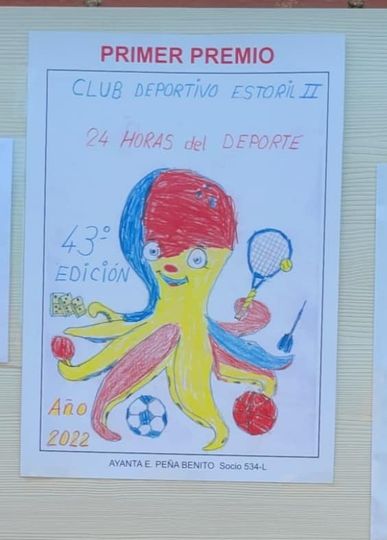 PRIMER PREMIO
CLUB DEPORTIVO ESTORIL II
24 HORAS del DEPORTE
43º
EDICIÓN
Año
2022
AYANTA E. PEÑA BENITO Socio 534-L